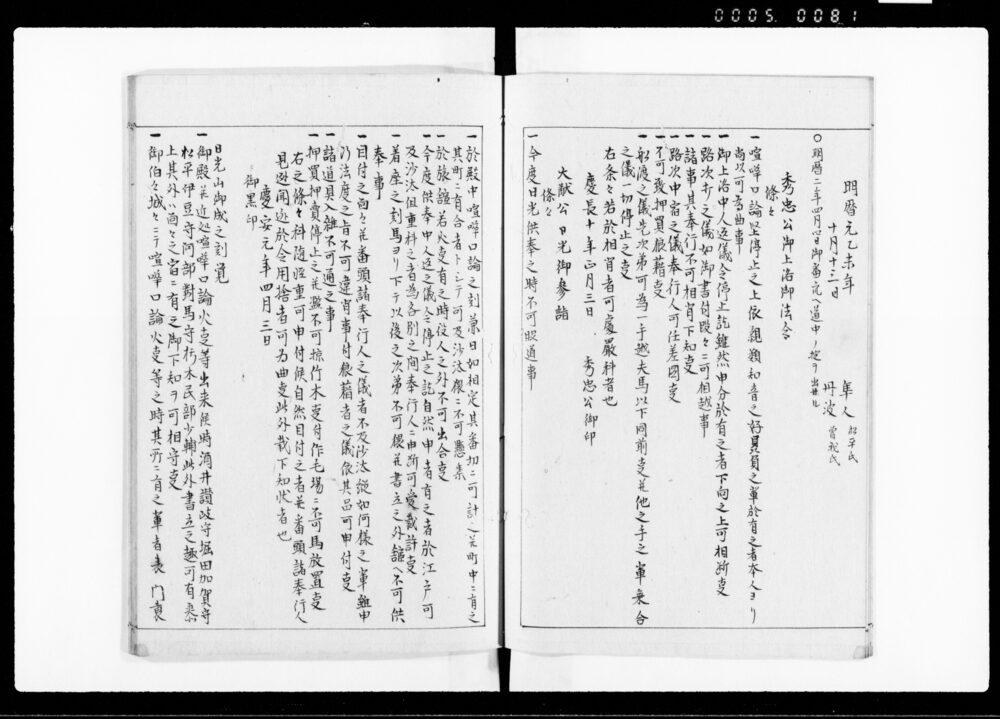 0005 0081
明暦元乙未年
十月十三日
隼人 松平氏
丹波 曽我氏
〇明暦二年四月四日御番衆へ道中ノ掟ヲ出サル
秀忠公御上洛御法令
條々
一喧嘩口論堅停止之上依親類知音之好贔負之輩於有之者本人ヨリ
尚以可為曲事
一御上洛中人返儀令停止訖雖然申分於有之者下向之上可相断叓
一路次オサ之儀如御書付段々ニ可相越事
一諸事其奉行不可相背下知叓
一路次中宿之儀奉行人可任差圖叓
一不可致押買狼藉叓
一船渡之儀先次第可為一手越夫馬以下同前叓并他之手之輩乗合
之儀一切停止之叓
右条々若於相背者可處嚴科者也
慶長十年正月三日 秀忠公御印
大猷公日光御參詣
條々
一今度日光供奉之時不可脇道事
一於殿中喧嘩口論之刻兼日如相定其番切ニ可計之於町中ニ有之
其町ニ有合者トシテ可及沙汰猥ニ不可懸集
一於旅舘若火叓有之時役人之外不可出合叓
一今度供奉中人返之儀令停止之訖自然申者有之者於江戸可
及沙汰但重科之者為各別之間奉行人ニ申断可受裁許叓
一着座之刻馬ヨリ下テ以後之次第不可猥并書立之外舘へ不可供
奉事
一目付之面々并番頭諸奉行人之儀者不及沙汰縦如何様之輩雖申
付法度之旨不可違背事付狼藉者之儀依其品可申付叓
一諸道具入雜不可通之事
一押買押賣停止之并濫不可掠竹木叓付作毛場ニ不可馬放置叓
右之條々科随軽重可申付候自然目付之者并番頭諸奉行人
見逃聞逃於令用捨者可為曲叓此外載下知状者也
慶安元年四月三日
御黒印
日光山御成之刻覚
一御殿并近処喧嘩口論火叓等出来候時酒井讃岐守堀田加賀守
松平伊豆守阿部對馬守朽木民部少輔此外書立之趣可有參
上其外ハ面々之宿ニ有之御下知ヲ可相守叓
一御伯々城々ニテ喧嘩口論火叓等之時其所ニ有之輩者表門裏